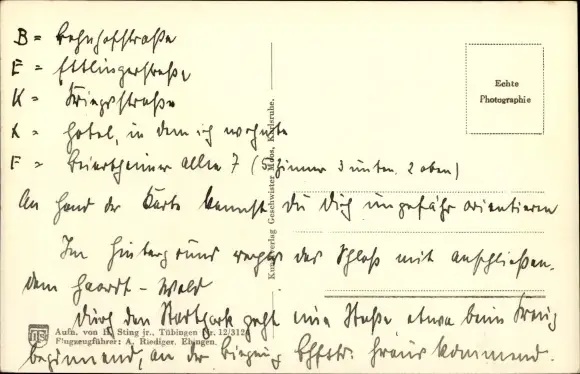 B = Bahnhofstraße
E = Ettlingerstraße
K = Kriegsstraße
X = Hotel, in dem ich wohnte
F = Beiertheimer Allee 7 (5 Zimmer 3 unten. 2 oben)
An Hand der Karte kannst Du Dich ungefähr orientieren
Im Hintergrund rechts das Schloß mit anschließen-
dem Haardt-Wald
Durch den Stadtpark geht eine Straße etwa beim Kreuz
beginnend, an der Biegung Ettstr. heraus kommend.
Echte
Photographie
Kunstverlag Geschwister Moos, Karlsruhe.
Aufn. von H. Sting jr., Tübingen Nr. 12/312
Flugzeugführer: A. Riediger. Ehingen.